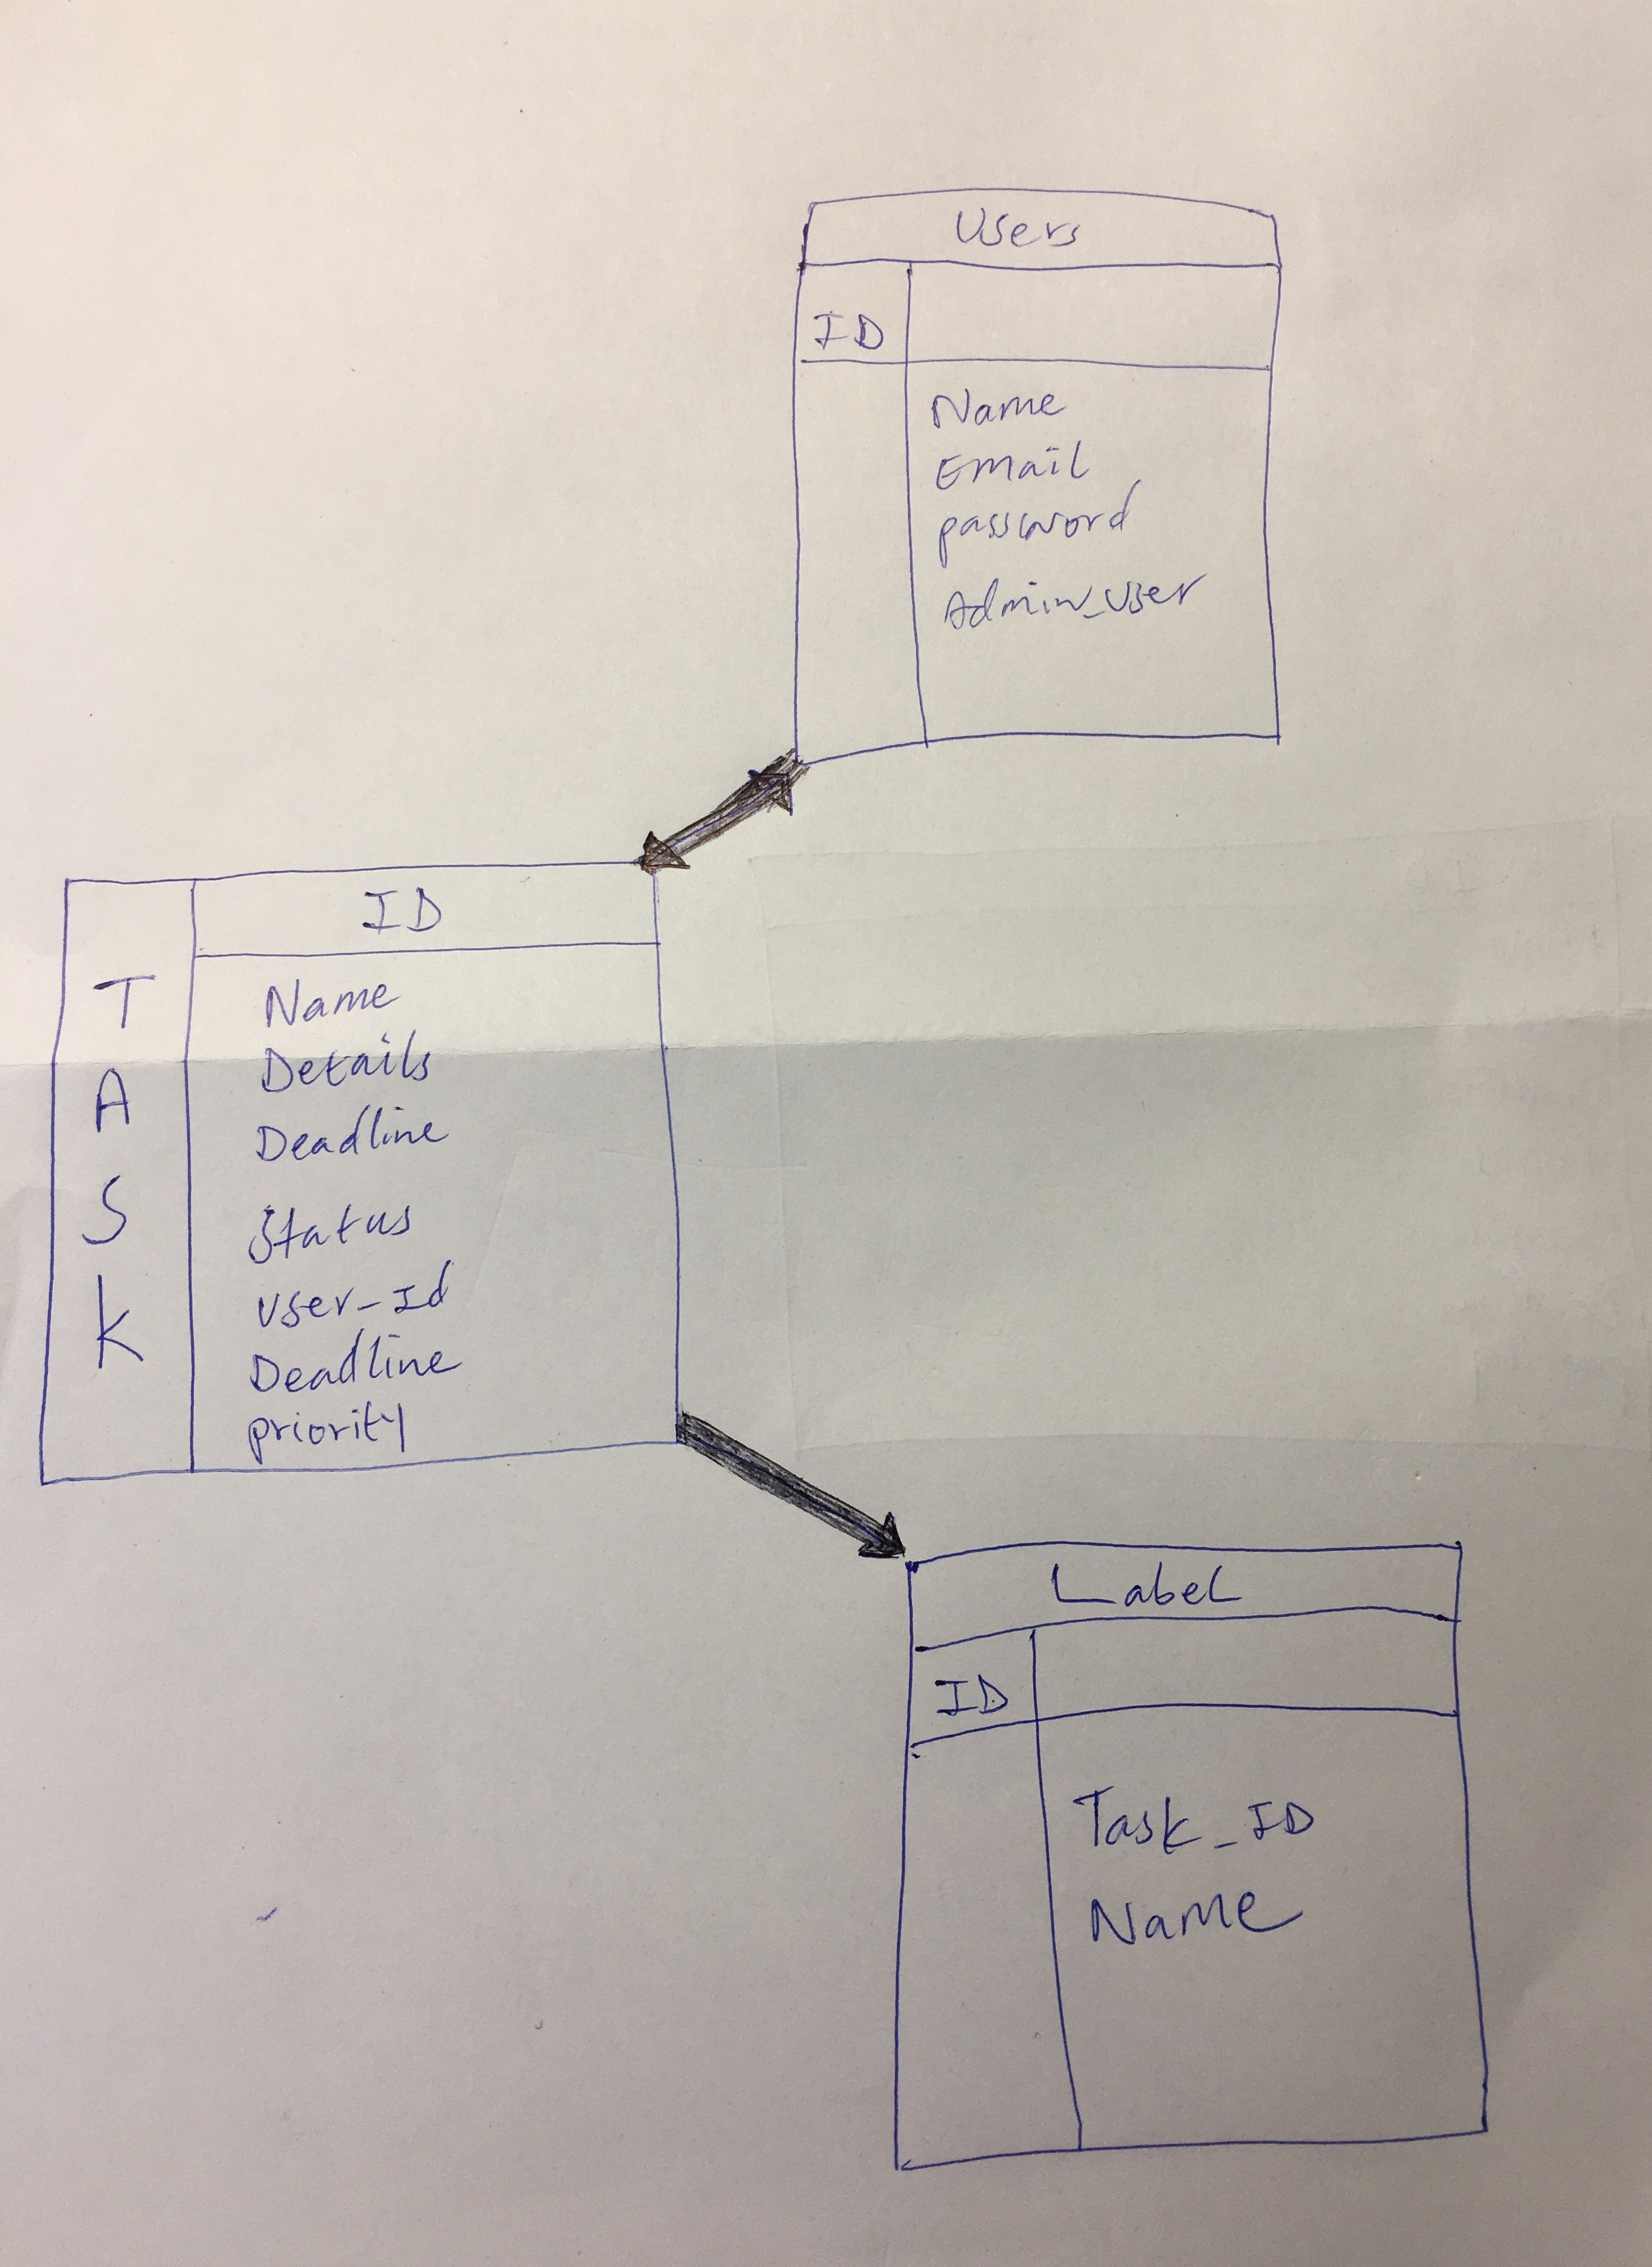 Users
ID
Name
Email
password
Admin_User
TASK
ID
Name
Details
Deadline
Status
User-Id
Deadline
priority
Label
ID
Task_ID
Name